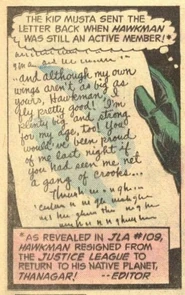 THE KID MUSTA SENT THE
LETTER BACK WHEN HAWKMAN
WAS STILL AN ACTIVE MEMBER!*
...and although my own
wings aren't as big as
yours, Hawkman, I
fly pretty good! I'm
plenty big and strong
for my age, too! You
would've been proud
of me last night if
you had seen me net
a gang of crooks...
*AS REVEALED IN JLA #109,
HAWKMAN RESIGNED FROM
THE JUSTICE LEAGUE TO
RETURN TO HIS NATIVE PLANET,
THANAGAR! --EDITOR